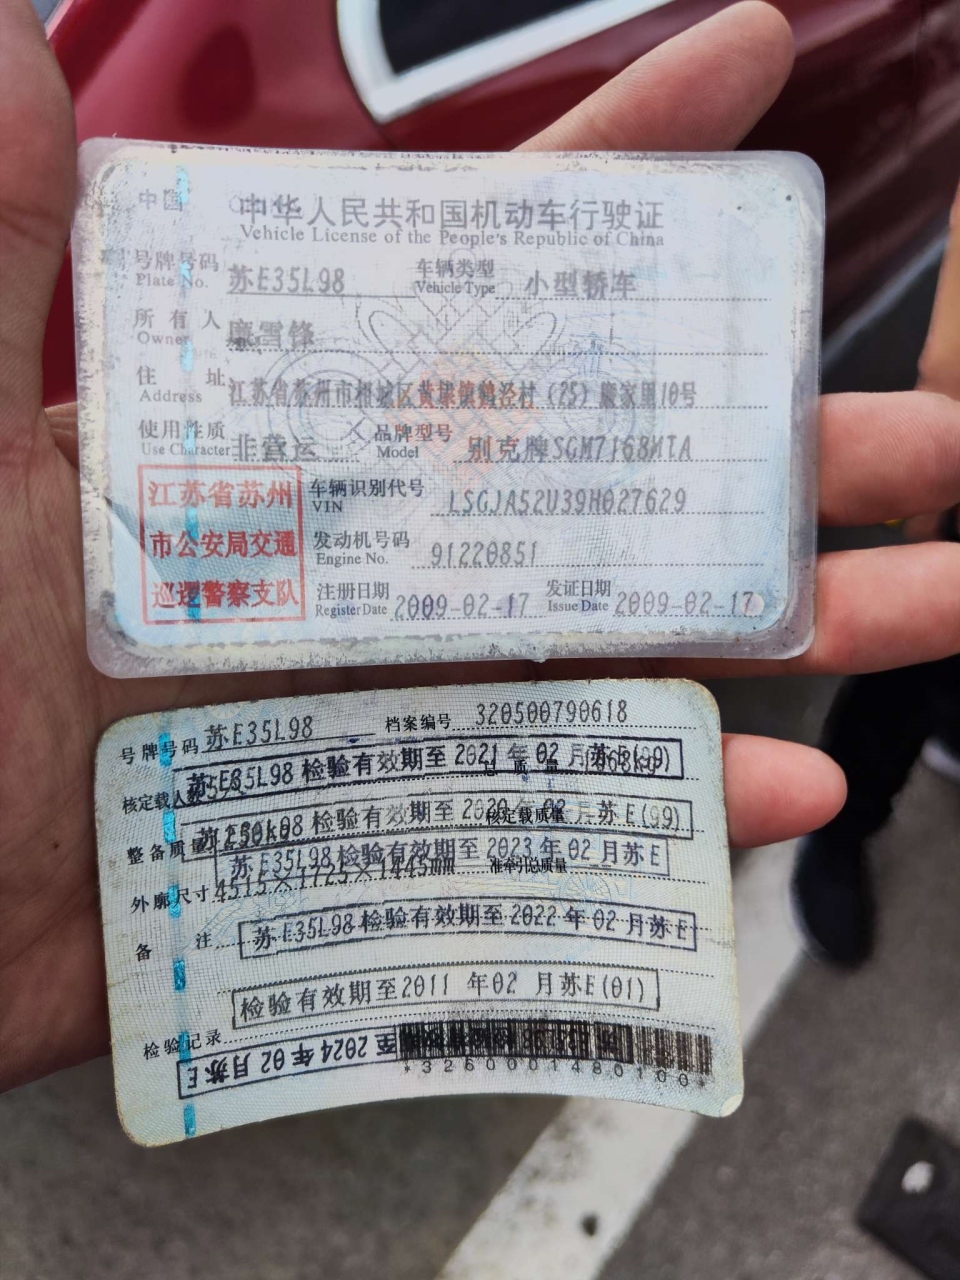 中国
中华人民共和国机动车行驶证
Vehicle License of the People's Republic of China
号牌号码 苏E35L98 车辆类型 小型轿车
Plate No. Vehicle Type
所有人 雪锋
Owner
住址 江苏省苏州市相城区黄埭镇鹤泾村(25)家里10号
Address
使用性质 非营运 品牌型号 别克牌SGM7168MTA
Use Character Model
江苏省苏州
市公安局交通
巡逻警察支队
车辆识别代号 LSGJA52U39H027629
VIN
发动机号码 91220851
Engine No.
注册日期 2009-02-17 发证日期 2009-02-17
Register Date Issue Date
号牌号码 苏E35L98 档案编号 320500790618
苏E35L98 检验有效期至 2021 年 02 月 苏E(99)
核定载人数 总质量
苏E35L98 检验有效期至 2020 年 02 月 苏E(99)
整备质量 核定载质量
苏E35L98 检验有效期至 2023 年 02 月苏E
外廓尺寸 4515×1725×1445mm 准牵引总质量
备注 苏E35L98 检验有效期至 2022 年 02 月苏E
检验有效期至2011 年02 月苏E(01)
检验记录
至 2024 年 02 月苏E
*3260001480100*